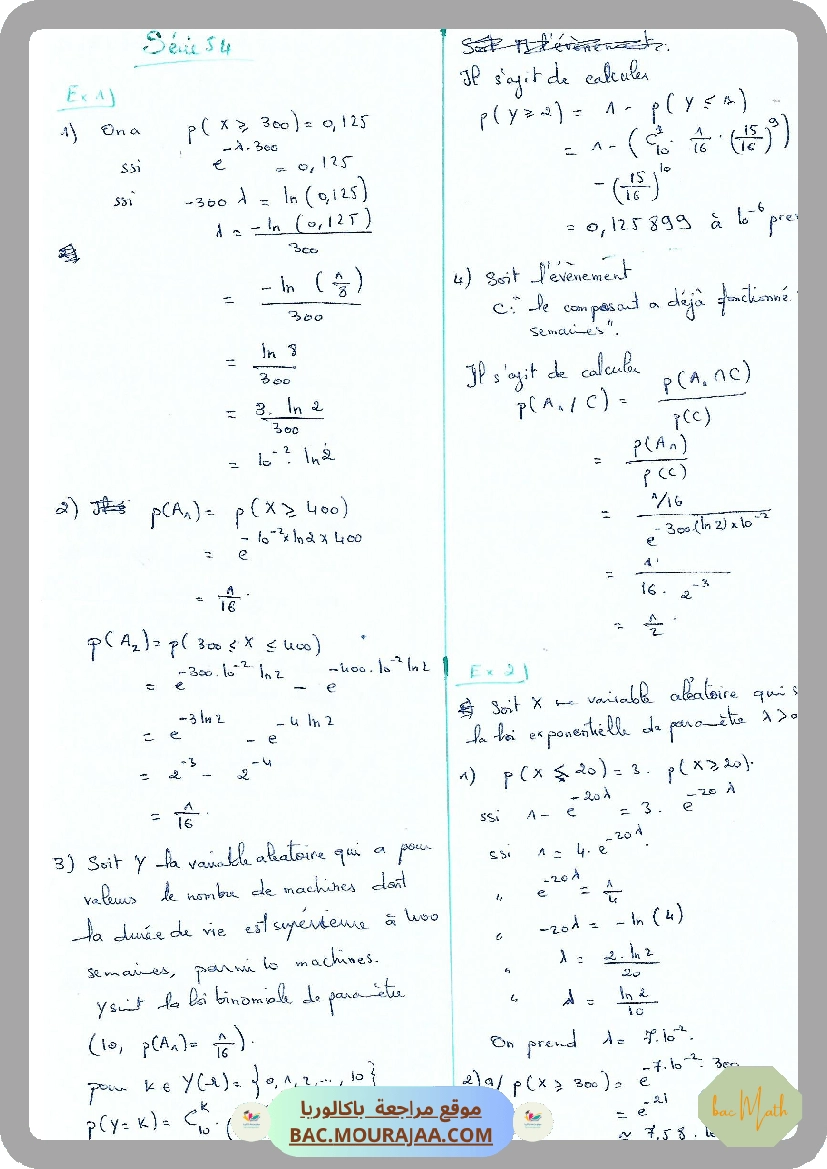 Série 54
Ex 1)
1) On a p(X ⩾ 300) = 0,125
ssi e^{-λ.300} = 0,125
ssi -300 λ = ln(0,125)
λ = -ln (0,125) / 300
= -ln (1/8) / 300
= ln 8 / 300
= 3. ln 2 / 300
= 10^{-2}. ln 2
2) p(A₁) = p(X ⩾ 400)
= e^{-10^{-2}×ln2×400}
= 1/16.
p(A₂) = p(300 ≤ X ≤ 400)
= e^{-300.10^{-2} ln2} - e^{-400.10^{-2} ln2}
= e^{-3 ln2} - e^{-4 ln2}
= 2^{-3} - 2^{-4}
= 1/16.
3) Soit Y la variable aléatoire qui a pour
valeurs le nombre de machines dont
la durée de vie est supérieure à 400
semaines, parmi 10 machines.
Y suit la loi binomiale de paramètre
(10, p(A₁) = 1/16).
pour k ∈ Y(Ω) = {0, 1, 2, ..., 10}
p(Y = k) = C_{10}^{k} . (
Il s'agit de calculer
p(Y ⩾ 2) = 1 - p(Y ≤ 1)
= 1 - (C_{10}^{1} . 1/16 . (15/16)^{9})
- (15/16)^{10}
= 0,125899 à 10^{-6} pre
4) Soit l'évènement
C: "le composant a déjà fonctionné
semaines".
Il s'agit de calculer
p(A₁ / C) = p(A₁ ∩ C) / p(C)
= p(A₁) / p(C)
= 1/16 / e^{-300(ln2)×10^{-2}}
= 1 / 16 . 2^{-3}
= 1/2.
Ex 2)
Soit X une variable aléatoire qui s
la loi exponentielle de paramètre λ > 0
1) p(X ≤ 20) = 3. p(X ⩾ 20).
ssi 1 - e^{-20λ} = 3. e^{-20λ}
ssi 1 = 4. e^{-20λ}.
" e^{-20λ} = 1/4
" -20λ = -ln(4)
" λ = 2. ln2 / 20
" λ = ln2 / 10
On prend λ = 7.10^{-2}.
2) a/ p(X ⩾ 300) = e^{-7.10^{-2}. 300}
= e^{-21}
≈ 7,58. 10
موقع مراجعة باكالوريا
BAC.MOURAJAA.COM
bac Math